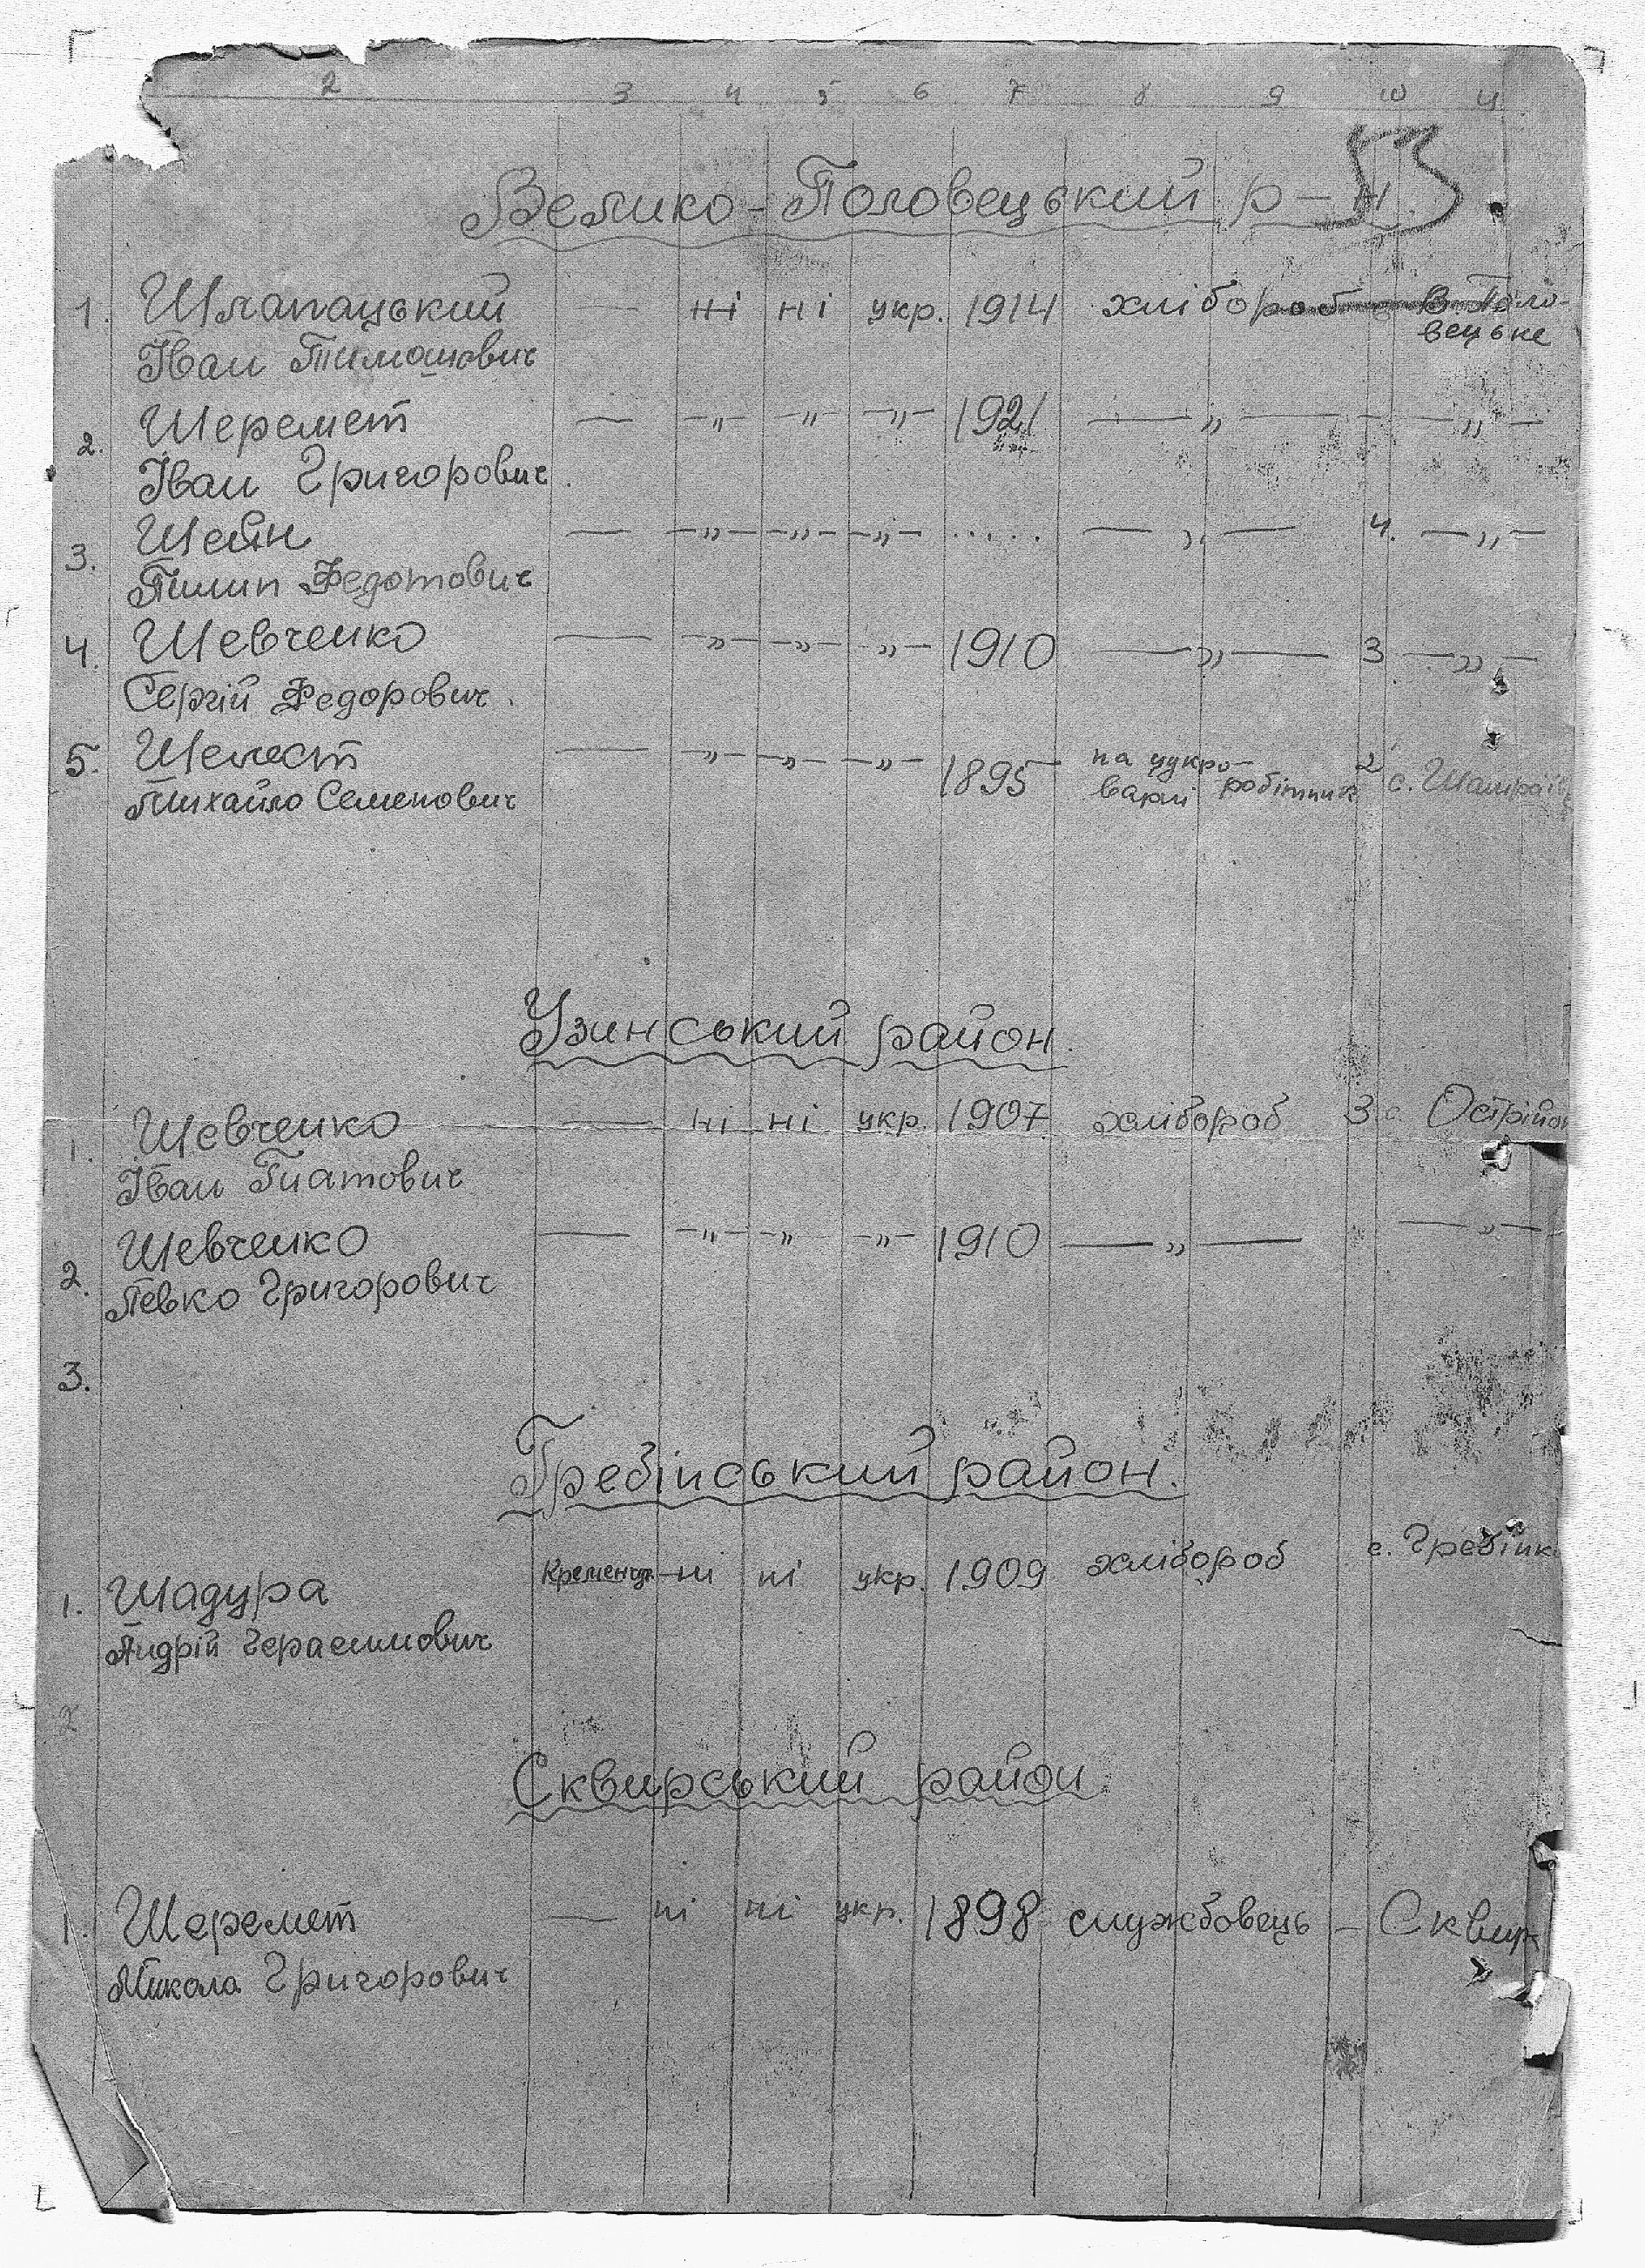 2 3 4 5 6 7 8 9 10 11
53
Велико-Половецький р-н.
1. Шлапацький — ні ні укр. 1914 хлібороб В. Поло-
вецьке
Іван Тимошович
2. Шеремет — -„- -„- -„- 1921 —„— -„-
Іван Григорович.
3. Шейн — -„- -„- -„- ..... —„— 4. -„-
Пилип Федотович
4. Шевченко — -„- -„- -„- 1910 —„— 3 -„-
Сергій Федорович.
5. Шелест — -„- -„- -„- 1895 на цукро-
варні робітник 2 с. Шамраїв
Михайло Семенович
Узинський район.
1. Шевченко — ні ні укр. 1907 хлібороб 3 с. Острій
Іван Гнатович
2. Шевченко — -„- -„- -„- 1910 —„— -„-
Левко Григорович
3.
Гребінський район.
1. Шадура Кременчук ні ні укр. 1909 хлібороб с. Гребінк
Андрій Герасимович
2
Сквирський район
1. Шеремет — ні ні укр. 1898 службовець – Сквир
Микола Григорович